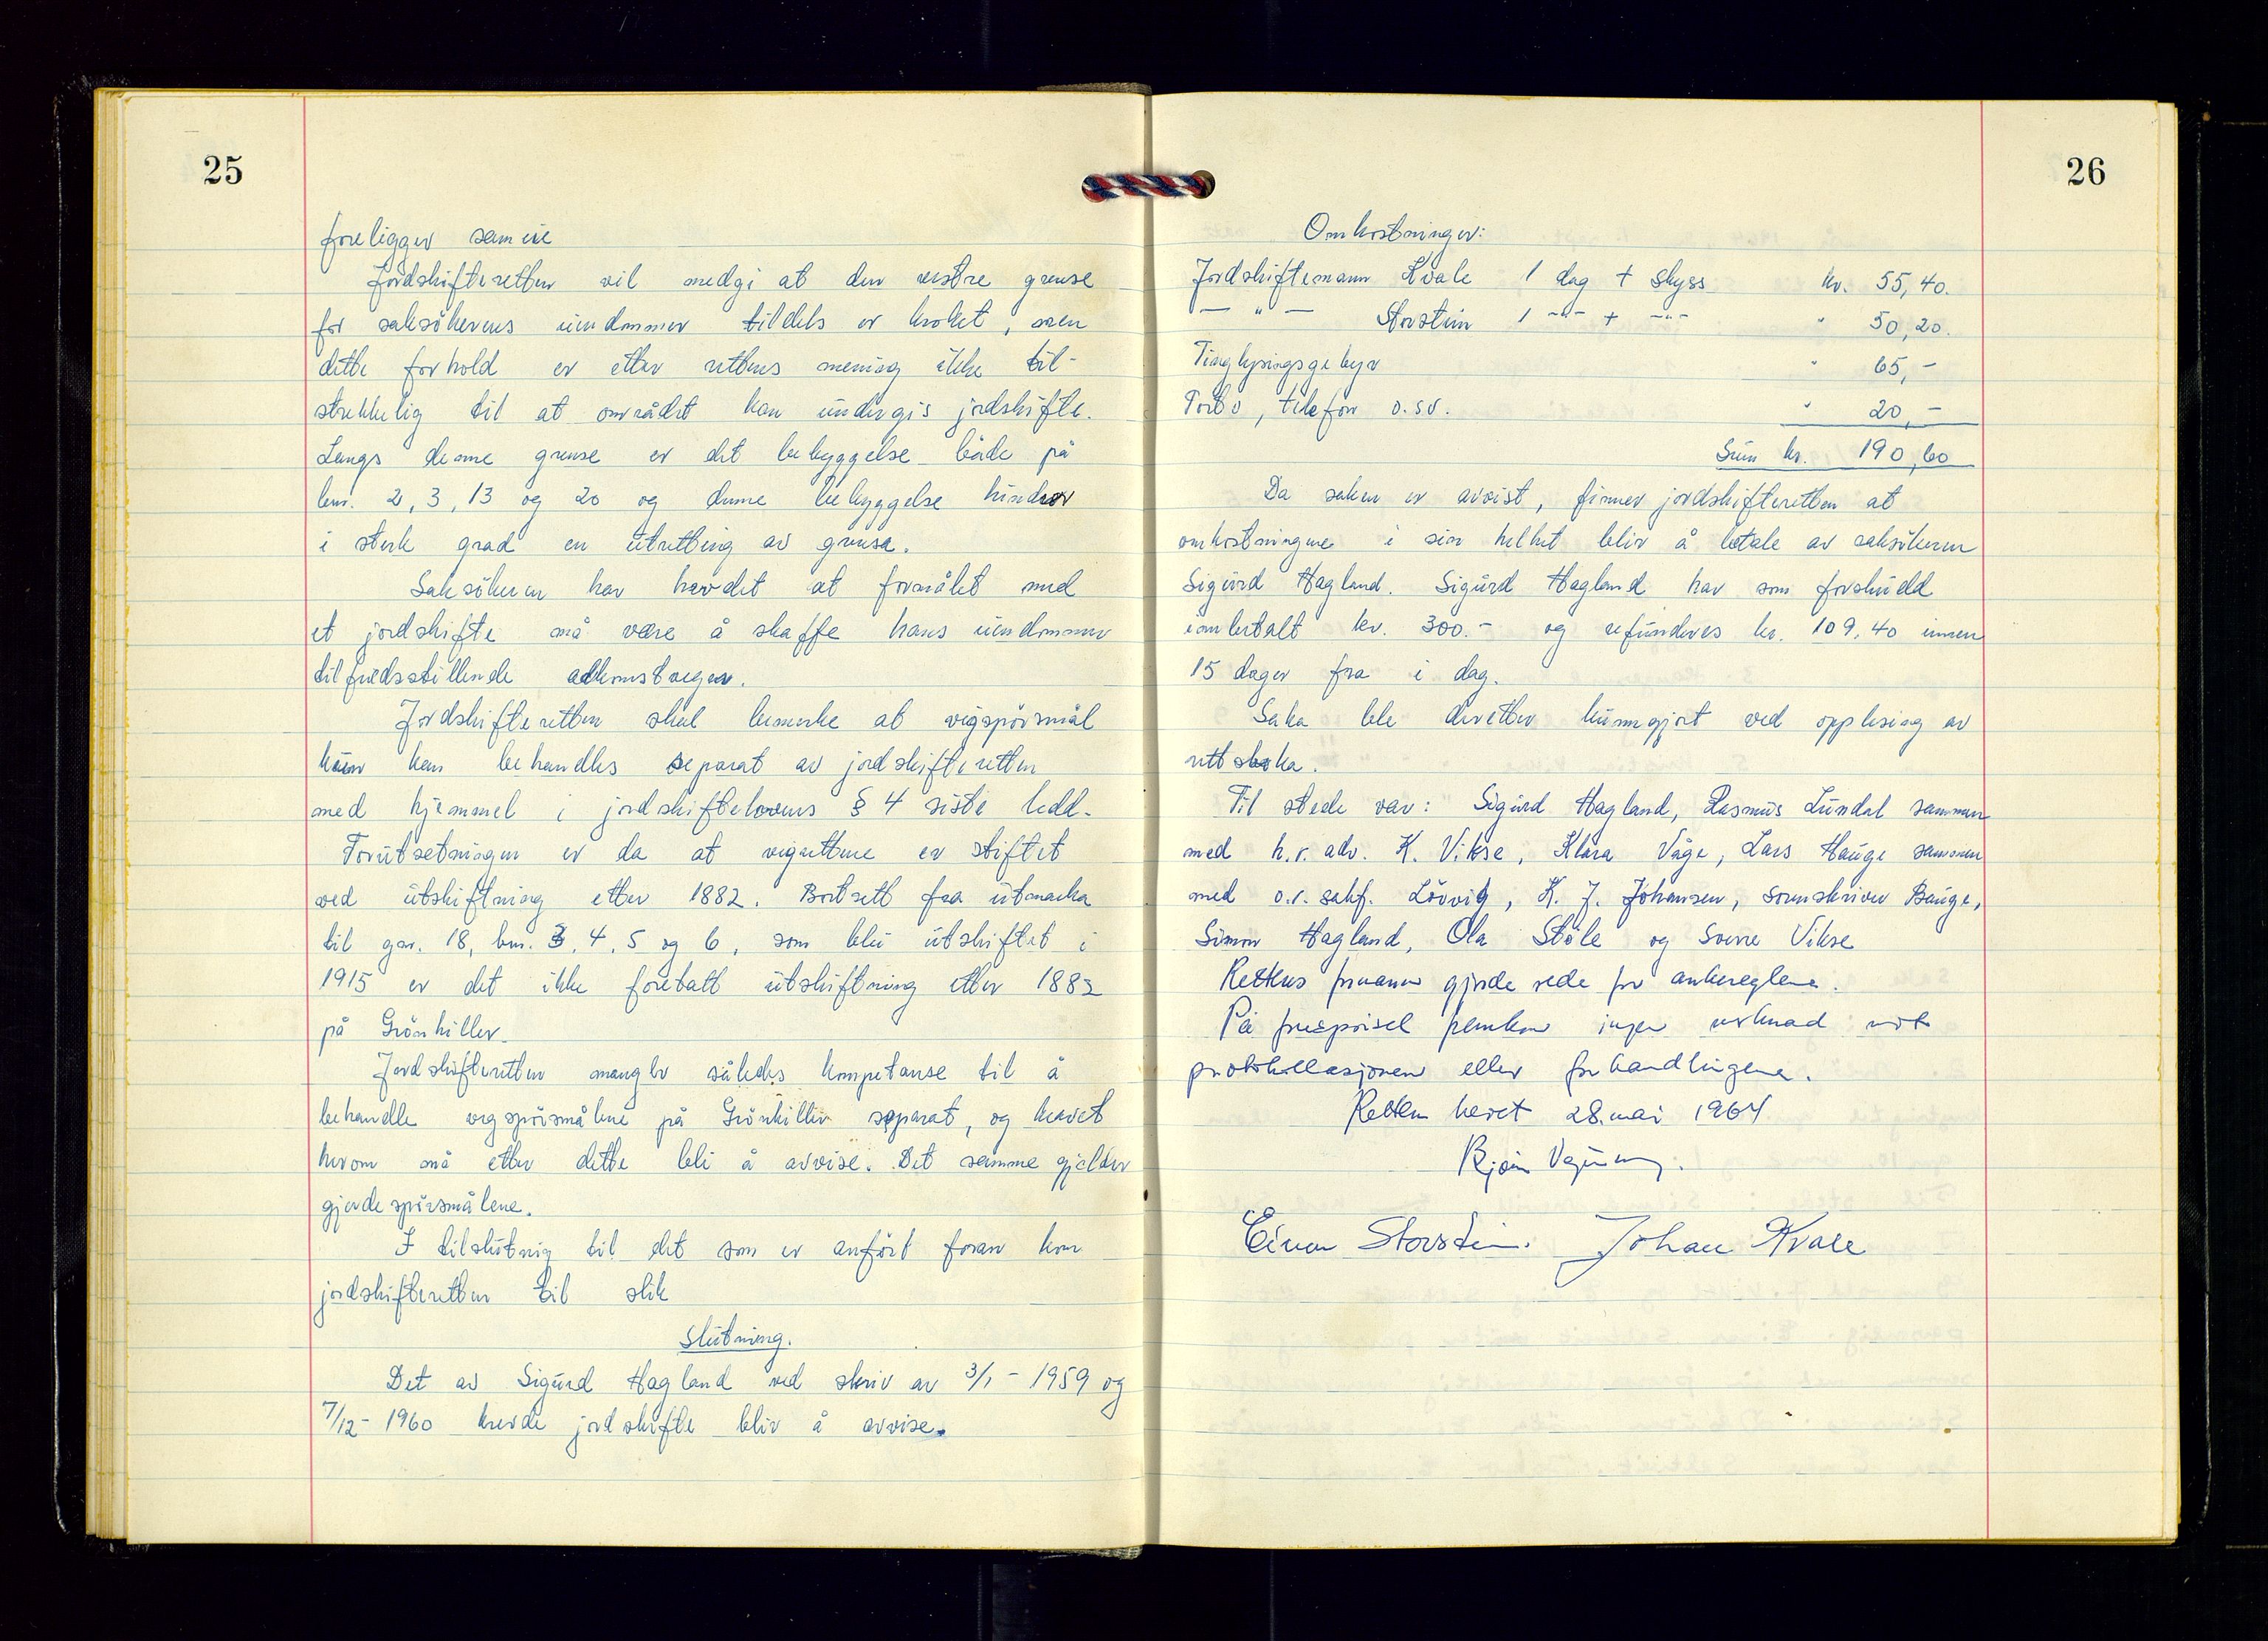 25
foreligger sameie
Jordskifteretten vil medgi at den vestre grense
for saksökerens eiendommer tildels er kroket, men
dette forhold er etter rettens mening ikke til-
strekkelig til at området kan undergis jordskifte.
Langs denne grense er det bebyggelse både på
bnr. 2, 3, 13 og 20 og denne bebyggelse hindrer
i sterk grad en utretting av grensa.
Saksökeren har hevdet at formålet med
et jordskifte må være å skaffe hans eiendommer
tilfredsstillende adkomstveger.
Jordskifteretten skal bemerke at vegspörsmål
kun kan behandles separat av jordskifteretten
med hjemmel i jordskiftelovens § 4 siste ledd.
Forutsetningen er da at vegrettene er stiftet
ved utskiftning etter 1882. Bortsett fra utmarka
til gnr. 18, bnr. 3, 4, 5 og 6, som blei utskiftet i
1915 er det ikke foretatt utskiftning etter 1882
på Grönhiller.
Jordskifteretten mangler således kompetanse til å
behandle vegspörsmålene på Grönhiller separat, og kravet
herom må etter dette bli å avvise. Det samme gjelder
gjerdespörsmålene.
I tilslutning til det som er anfört foran kom
jordskifteretten til slik
Slutning.
Det av Sigurd Hagland ved skriv av 3/1 - 1959 og
7/12 - 1960 krevde jordskifte blir å avvise.
26
Omkostninger:
Jordskiftemann Kvale 1 dag + skyss kr. 55,40.
— " — Storstein 1 -"- + -"- " 50,20.
Tinglysingsgebyr " 65,-
Porto, telefon o.sv. " 20,-
Sum kr. 190,60
Da saken er avvist, finner jordskifteretten at
omkostningene i sin helhet blir å betale av saksökeren
Sigurd Hagland. Sigurd Hagland har som forskudd
innbetalt kr. 300.- og refunderes kr. 109,40 innen
15 dager fra i dag.
Saka ble deretter kunngjort ved opplesing av
rettsboka.
Til stede var: Sigurd Hagland, Rasmus Lundal sammen
med h.r. adv. K. Vikse, Klara Våge, Lars Hauge sammen
med o.r. sakf. Lövvig, K. J. Johansen, sorenskriver Bauge,
Simon Hagland, Ola Stöle og Sverre Vikse
Rettens formann gjorde rede for ankereglene.
På forespörsel fremkom ingen merknad mot
protokollasjonen eller forhandlingene.
Retten hevet 28. mai 1964
Björn
Einar Storstein. Johan Kvale